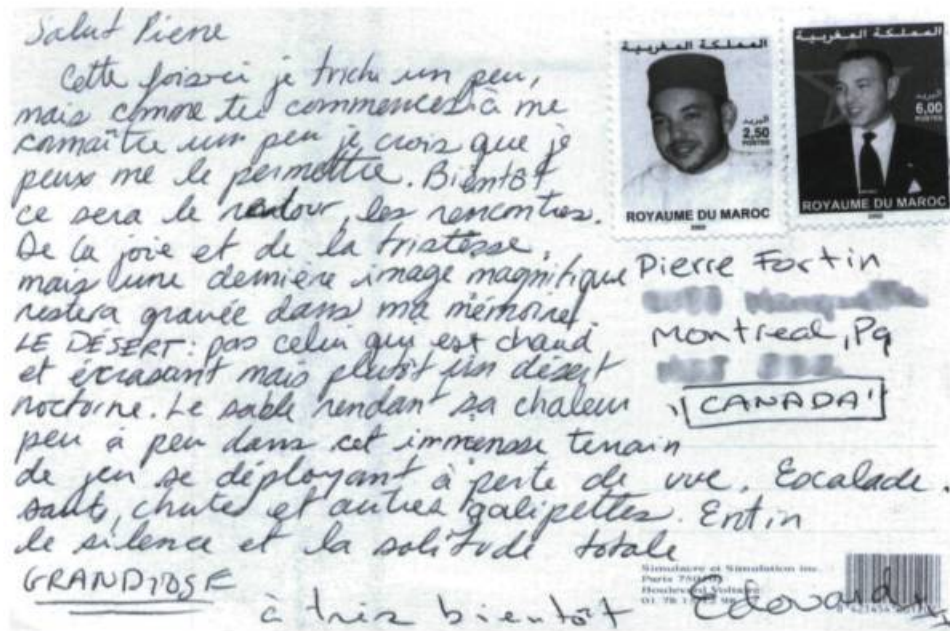 Salut Pierre
Cette fois-ci je triche un peu,
mais comme tu commences à me
connaître un peu je crois que je
peux me le permettre. Bientôt
ce sera le retour, les rencontres.
De la joie et de la tristesse,
mais une dernière image magnifique
restera gravée dans ma mémoire,
LE DÉSERT: pas celui qui est chaud
et écrasant mais plutôt un désert
nocturne. Le sable rendant sa chaleur
peu à peu dans cet immense terrain
de jeu se déployant à perte de vue. Escalade,
sauts, chutes et autres galipettes. Enfin
le silence et la solitude totale
GRANDIOSE
à très bientôt Edouard
المملكة المغربية
البريد
2,50
POSTES
ROYAUME DU MAROC
2002
المملكة المغربية
6,00
البريد
POSTES
ROYAUME DU MAROC
2002
Pierre Fortin
Montreal, Pq
"CANADA"
Simulacre et Simulation inc.
Paris
Boulevard Voltaire